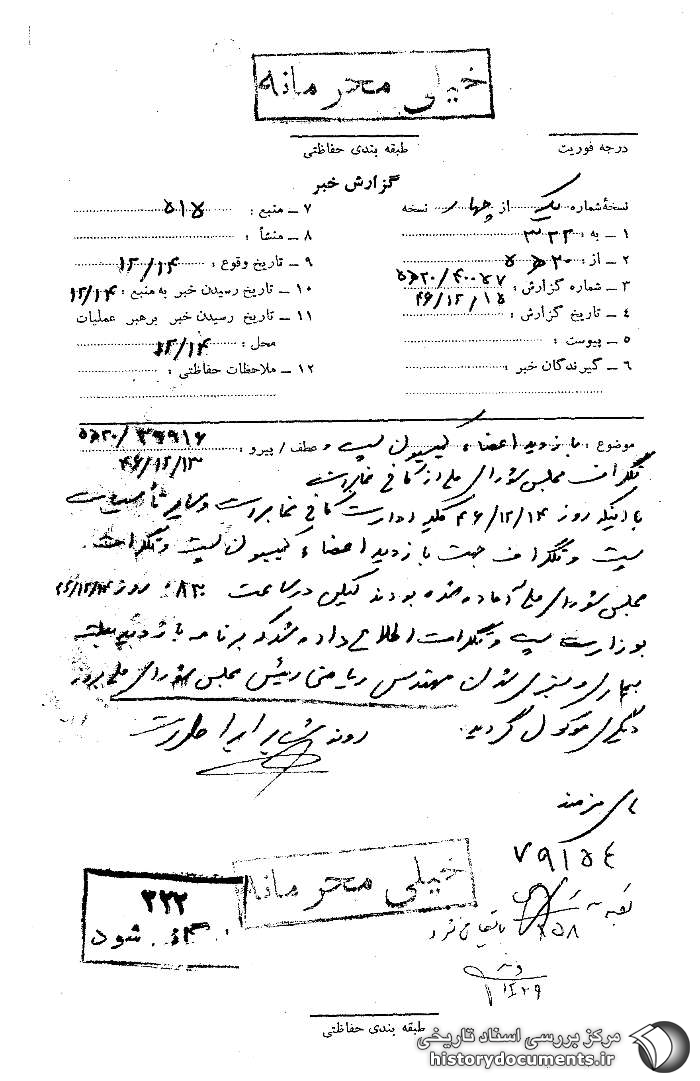 خیلی محرمانه
درجه فوریت
طبقه بندی حفاظتی
گزارش خبر
نسخهٔ شماره یک از چهار نسخه
۱ ـ به : ۳۲۲
۲ ـ از : ۲۰ ه‍ ۵
۳ ـ شماره گزارش : ۲۰/۴۰۰۵۷ ه‍ ۵
۴ ـ تاریخ گزارش : ۴۶/۱۲/۱۵
۵ ـ پیوست :
۶ ـ گیرندگان خبر :
۷ ـ منبع : ۵۱۵
۸ ـ منشأ :
۹ ـ تاریخ وقوع : ۱۲/۱۴
۱۰ ـ تاریخ رسیدن خبر به منبع : ۱۲/۱۴
۱۱ ـ تاریخ رسیدن خبر برهبر عملیات
محل : ۱۲/۱۴
۱۲ ـ ملاحظات حفاظتی :
موضوع : بازدید اعضاء کمیسیون پست و عطف / پیرو : ۲۰/۳۹۹۱۶ ه‍ ۵
۴۶/۱۲/۱۳
تلگراف مجلس شورای ملی از کاخ مخابرات
با اینکه روز ۴۶/۱۲/۱۴ کلیه ادارات کاخ مخابرات و سایر تأسیسات
پست و تلگراف جهت بازدید اعضاء کمیسیون پست و تلگراف
مجلس شورای ملی آماده شده بودند لیکن در ساعت ۸۳۰ روز ۴۶/۱۲/۱۴
بوزارت پست و تلگراف اطلاع داده شد که برنامه بازدید بعلت
بیماری و بستری شدن مهندس ریاضی رئیس مجلس شورای ملی بروز
دیگری موکول گردید.
خیلی محرمانه
۷۹۱۵۴
۳۲۲
شود
بایگانی شود
۱۲/۲۹
طبقه بندی حفاظتی
مرکز بررسی اسناد تاریخی
historydocuments.ir